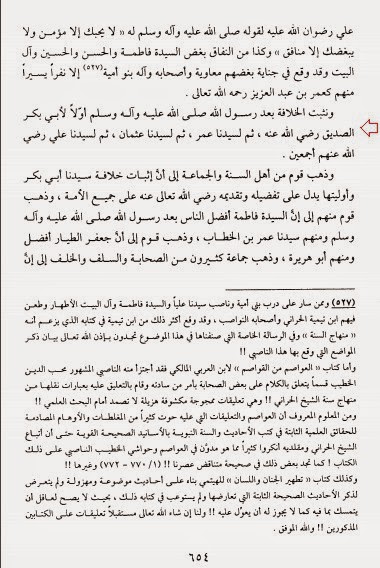 علي رضوان الله عليه لقوله صلى الله عليه وآله وسلم له « لا يحبك إلا مؤمن ولا
يبغضك إلا منافق » وكذا من النفاق بغض السيدة فاطمة والحسن والحسين وآل
البيت وقد وقع في جناية بغضهم معاوية وأصحابه وآله بنو أمية(٥٢٧) إلا نفراً يسيراً
منهم كعمر بن عبد العزيز رحمه الله تعالى .
ونثبت الخلافة بعد رسول الله صلى الله عليه وآله وسلم أولاً لأبي بكر
الصديق رضي الله عنه ، ثم لسيدنا عمر ، ثم لسيدنا عثمان ، ثم لسيدنا علي رضي
الله عنهم أجمعين .
وذهب قوم من أهل السنة والجماعة إلى أنَّ إثبات خلافة سيدنا أبي بكر
وأوليتها يدل على تفضيله وتقديمه رضي الله تعالى عنه على جميع الأمة ، وذهب
قوم منهم إلى إنَّ السيدة فاطمة أفضل الناس بعد رسول الله صلى الله عليه وآله
وسلم ومنهم سيدنا عمر بن الخطاب ، وذهب قوم إلى أنَّ جعفر الطيار أفضل
ومنهم أبو هريرة ، وذهب جماعة كثيرون من الصحابة والسلف والخلف إلى إنَّ
(٥٢٧) وممن سار على درب بني أمية وناصب سيدنا علياً والسيدة فاطمة وآل البيت الأطهار وطعن
فيهم ابن تيمية الحراني وأصحابه النواصب ، وقد وقع أكثر ذلك من ابن تيمية في كتابه الذي يزعم أنه
« منهاج سنة » وفي الرسالة الخاصة التي صنفناها في هذا الموضوع تجدون بإذن الله تعالى بيان ذكر
المواضع التي وقع بها هذا الناصبي !!
وأما كتاب « العواصم من القواصم » لابن العربي المالكي فقد أجتزأ منه الناصبي المشهور محب الدين
الخطيب قسماً يتعلق بالكلام على بعض الصحابة بأمر من سادته وقام بالتعليق عليه بعبارات نقلها من
منهاج سنة الشيخ الحراني !! وهي تعليقات ممجوجة مكشوفة هزيلة لا تصمد أمام البحث العلمي !!
ومن المعلوم المعروف أن العواصم والتعليقات التي عليه حوت كثيراً من المغلطات والأوهام المصادمة
للحقائق العلمية الثابتة في كتب الأحاديث والسنة النبوية بالأسانيد الصحيحة القوية حتى أن أتباع
الشيخ الحراني ومقلديه أنكروا كثيراً مما هو مدوَّن في العواصم وحواشي الخطيب الناصبي على ذلك
الكتاب ! كما تجد بعض ذلك في صحيحة متناقض عصرنا !! (١/ ٧٧٠ - ٧٧٢) وغيرها !!
وكذلك كتاب « تطهير الجنان واللسان » للهيتمي بناه على أحاديث موضوعة ومهزولة ولم يتعرض
لذكر الأحاديث الصحيحة الثابتة التي تعارضها ولم يستوعب في كتابه ذلك ، بحيث لا يصح لعاقل أن
يتمسك بما فيه كما لا يجوز له أن يعوِّل عليه !! ولنا إن شاء الله تعالى مستقبلاً تعليقات على الكتابين
المذكورين !! والله الموفق .
٦٥٤